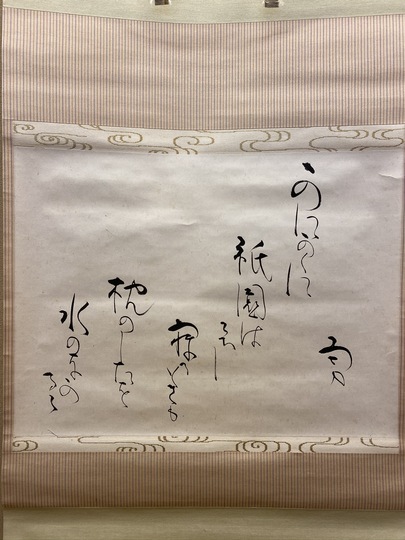 勇
かにかくに
祇園は
こひし
寐るときも
枕のしたを
水のなか
るる